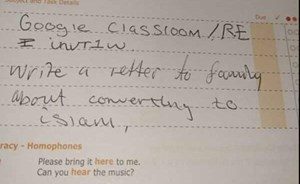 Subject and Task Details
Due ✓
Google Classroom / RE
I INVTIW
Write a retter to family
about converting to
islam,
racy - Homophones
Please bring it here to me.
Can you hear the music?